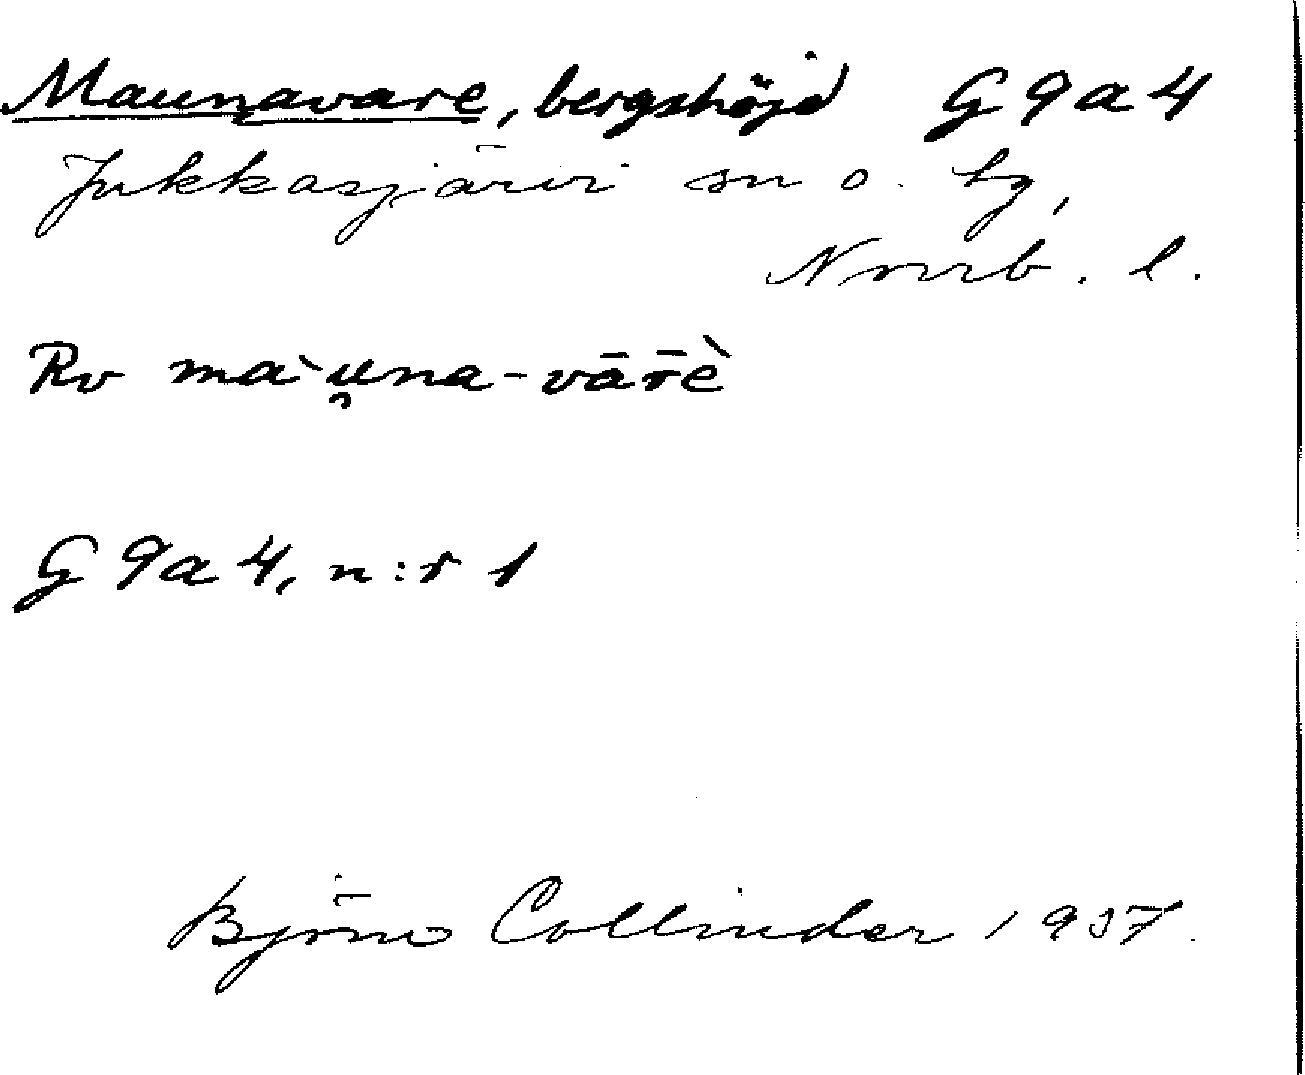 Maunavare, bergshöjd G9a4
Jukkasjärvi sn o. tg,
Norrb. l.
Rv mà u̯na-vār̄ḕ
G9a4, n:r 1
Björn Collinder 1937.